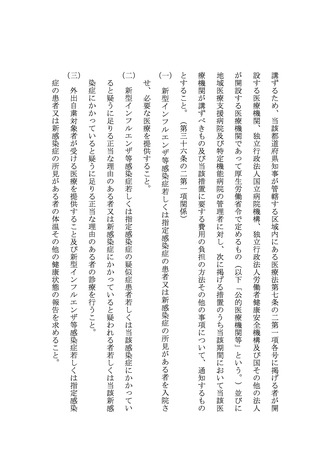 講ずるため、当該都道府県知事が管轄する区域内にある医療法第七条の二第一項各号に掲げる者が開
設する医療機関、独立行政法人国立病院機構、独立行政法人労働者健康安全機構及び国その他の法人
が開設する医療機関であって厚生労働省令で定めるもの（以下「公的医療機関等」という。）並びに
地域医療支援病院及び特定機能病院の管理者に対し、次に掲げる措置のうち当該期間において当該医
療機関が講ずべきもの及び当該措置に要する費用の負担の方法その他の事項について、通知するもの
とすること。（第三十六条の二第一項関係）
㈠　新型インフルエンザ等感染症若しくは指定感染症の患者又は新感染症の所見がある者を入院さ
せ、必要な医療を提供すること。
㈡　新型インフルエンザ等感染症若しくは指定感染症の疑似症患者若しくは当該感染症にかかってい
ると疑うに足りる正当な理由のある者又は新感染症にかかっていると疑われる者若しくは当該新感
染症にかかっていると疑うに足りる正当な理由のある者の診療を行うこと。
㈢　外出自粛対象者が受ける医療を提供すること及び新型インフルエンザ等感染症若しくは指定感染
症の患者又は新感染症の所見がある者の体温その他の健康状態の報告を求めること。